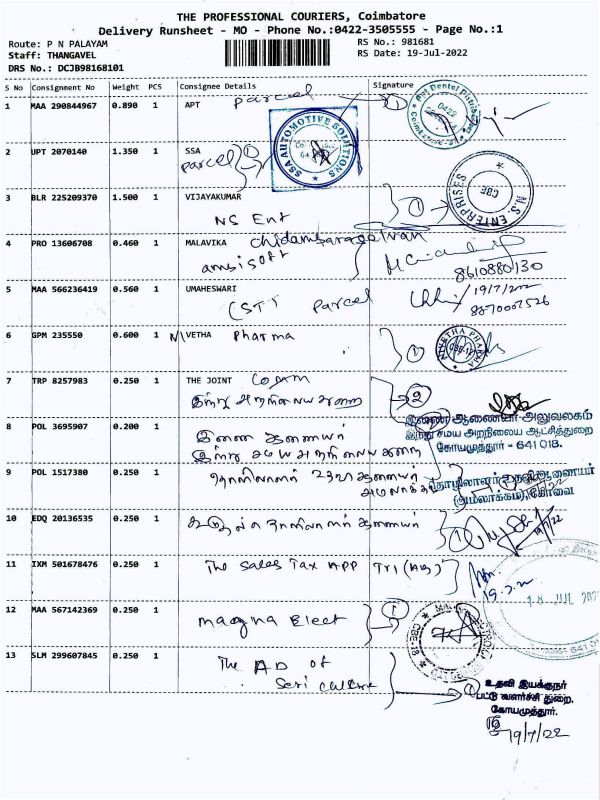 THE PROFESSIONAL COURIERS, Coimbatore
Delivery Runsheet - MO - Phone No.:0422-3505555 - Page No.:1
Route: P N PALAYAM
RS No.: 981681
Staff: THANGAVEL
RS Date: 19-Jul-2022
DRS No.: DCJB98168101
S No Consignment No Weight PCS Consignee Details Signature
1 MAA 290844967 0.890 1 APT Parcel 1
0422
SSA AUTOMOTIVE SOLUTIONS
2 UPT 2070140 1.350 1 SSA
Parcel 1
3 BLR 225209370 1.500 1 VIJAYAKUMAR
NS Ent 1
N.S. ENTERPRISES
CBE
4 PRO 13606708 0.460 1 MALAVIKA
8610880130
5 MAA 566236419 0.560 1 UMAHESWARI
(ST) Parcel
19/7/2022
8870007526
6 GPM 235550 0.600 1 NIVETHA Pharma 1
NIVETHA PHARMA
7 TRP 8257983 0.250 1 THE JOINT Comm 2
இந்து அறநிலைய துறை
இணை ஆணையர் அலுவலகம்
இந்து சமய அறநிலைய ஆட்சித்துறை
கோயமுத்தூர் - 641 018.
8 POL 3695907 0.200 1
இணை ஆணையர்
இந்து சமய அறநிலைய துறை
9 POL 1517380 0.250 1
தொழிலாளர் உதவி ஆணையர்
(அமலாக்கம்), கோவை
10 EDQ 20136535 0.250 1 1
19/7/22
11 IXM 501678476 0.250 1 The Sales Tax APP Tri (AB)
19.7.22
12 MAA 567142369 0.250 1
Magna Elect 1
13 SLM 299607845 0.250 1 The AD of
Seri Culture 1
உதவி இயக்குநர்
பட்டு வளர்ச்சி துறை,
கோயமுத்தூர்.
19/7/22